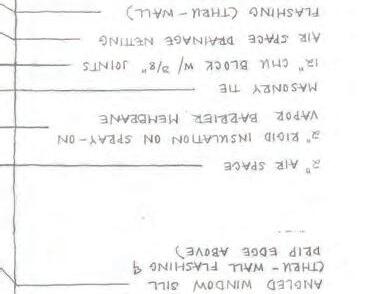 ANGLED WINDOW SILL
(THRU-WALL FLASHING &
DRIP EDGE ABOVE)
2" AIR SPACE
2" RIGID INSULATION ON SPRAY-ON
VAPOR BARRIER MEMBRANE
MASONRY TIE
12" CMU BLOCK W/ 3/8" JOINTS
AIR SPACE DRAINAGE NETTING
FLASHING (THRU-WALL)